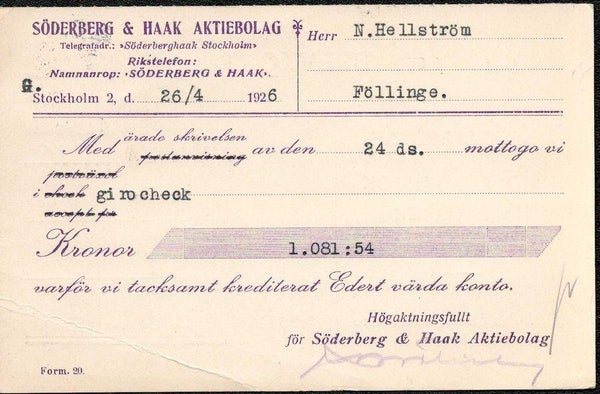 SÖDERBERG & HAAK AKTIEBOLAG
Telegrafadr.: »Söderberghaak Stockholm»
Rikstelefon:
Namnanrop: »SÖDERBERG & HAAK».
G.
Stockholm 2, d. 26/4 1926
Herr N.Hellström
Föllinge.
Med ärade skrivelsen postanvisning av den 24 ds. mottogo vi
postväxel
i check girocheck
accept för
Kronor 1.081:54
varför vi tacksamt krediterat Edert värda konto.
Högaktningsfullt
för Söderberg & Haak Aktiebolag
Form. 20.